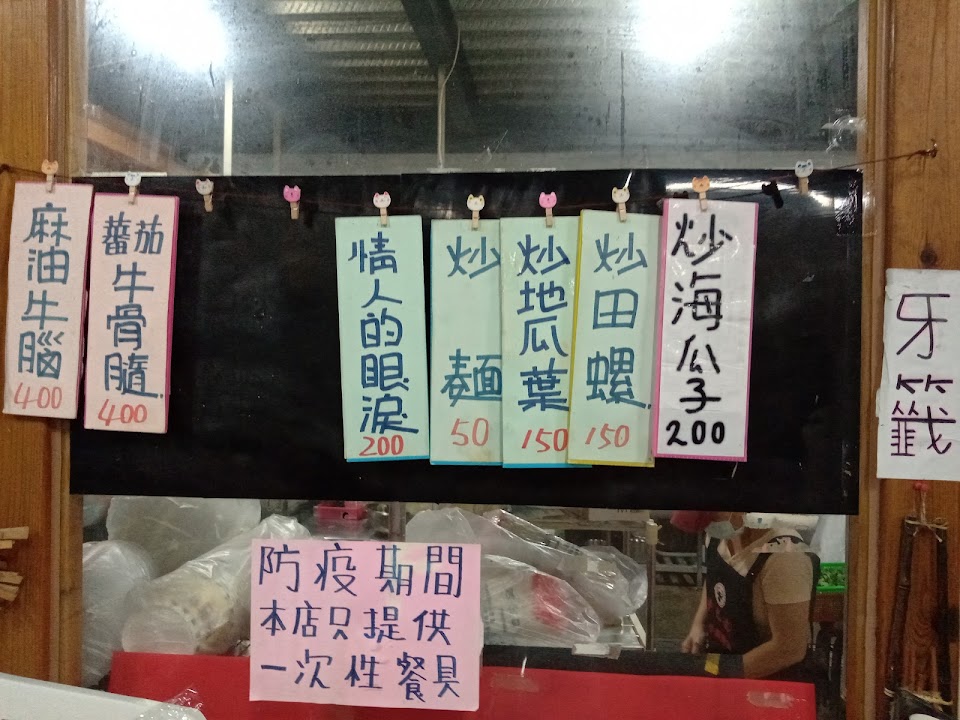 麻油牛腦
400
蕃茄
牛骨隨
400
情人的眼淚
200
炒麵
50
炒地瓜葉
150
炒田螺
150
炒海瓜子
200
牙籤
防疫期間
本店只提供
一次性餐具